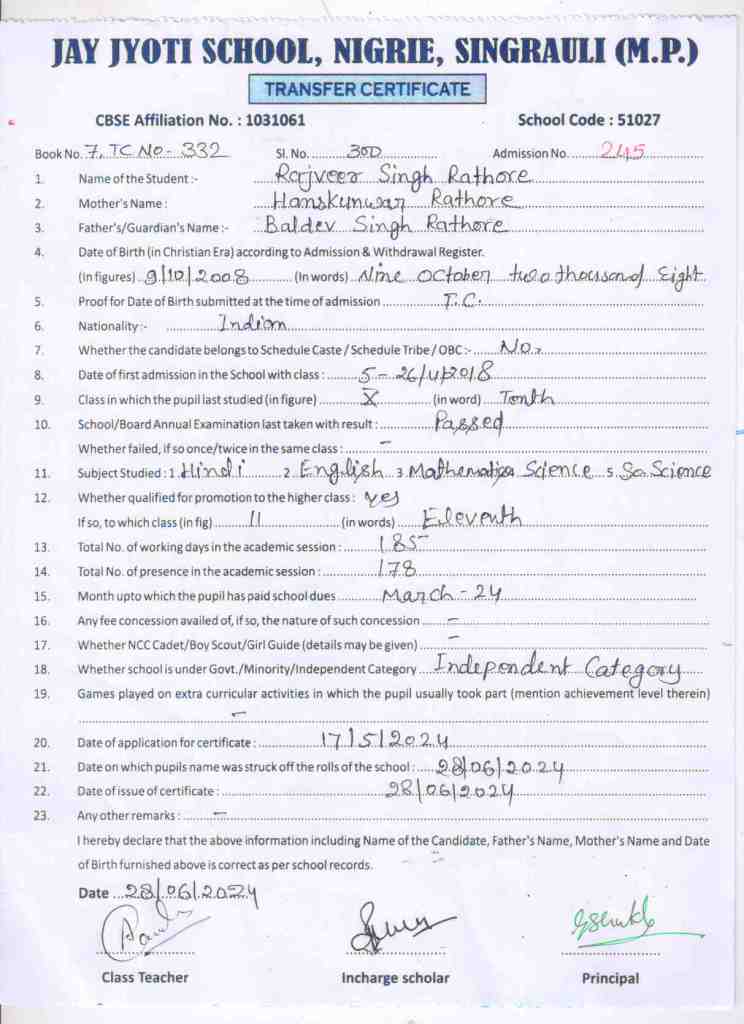 JAY JYOTI SCHOOL, NIGRIE, SINGRAULI (M.P.)
TRANSFER CERTIFICATE
CBSE Affiliation No. : 1031061 School Code : 51027
Book No. 7, TC NO - 332 Sl. No. 300 Admission No. 245
1. Name of the Student :- Rajveer Singh Rathore
2. Mother's Name : Hanskunwar Rathore
3. Father's/Guardian's Name :- Baldev Singh Rathore
4. Date of Birth (in Christian Era) according to Admission & Withdrawal Register.
(in figures) 9/10/2008 (In words) Nine October two thousand Eight
5. Proof for Date of Birth submitted at the time of admission T.C.
6. Nationality :- Indian
7. Whether the candidate belongs to Schedule Caste / Schedule Tribe / OBC :- No.
8. Date of first admission in the School with class : 5 - 26/4/2018
9. Class in which the pupil last studied (in figure) X (in word) Tenth
10. School/Board Annual Examination last taken with result : Passed
Whether failed, if so once/twice in the same class : -
11. Subject Studied : 1 Hindi 2 English 3 Mathematics Science 5 So. Science
12. Whether qualified for promotion to the higher class : Yes
If so, to which class (in fig) 11 (in words) Eleventh
13. Total No. of working days in the academic session : 185
14. Total No. of presence in the academic session : 178
15. Month upto which the pupil has paid school dues March - 24
16. Any fee concession availed of, if so, the nature of such concession -
17. Whether NCC Cadet/Boy Scout/Girl Guide (details may be given) -
18. Whether school is under Govt./Minority/Independent Category Independent Category
19. Games played on extra curricular activities in which the pupil usually took part (mention achievement level therein)
-
20. Date of application for certificate : 17/5/2024
21. Date on which pupils name was struck off the rolls of the school : 28/06/2024
22. Date of issue of certificate : 28/06/2024
23. Any other remarks : -
I hereby declare that the above information including Name of the Candidate, Father's Name, Mother's Name and Date
of Birth furnished above is correct as per school records.
Date 28/06/2024
Class Teacher Incharge scholar Principal